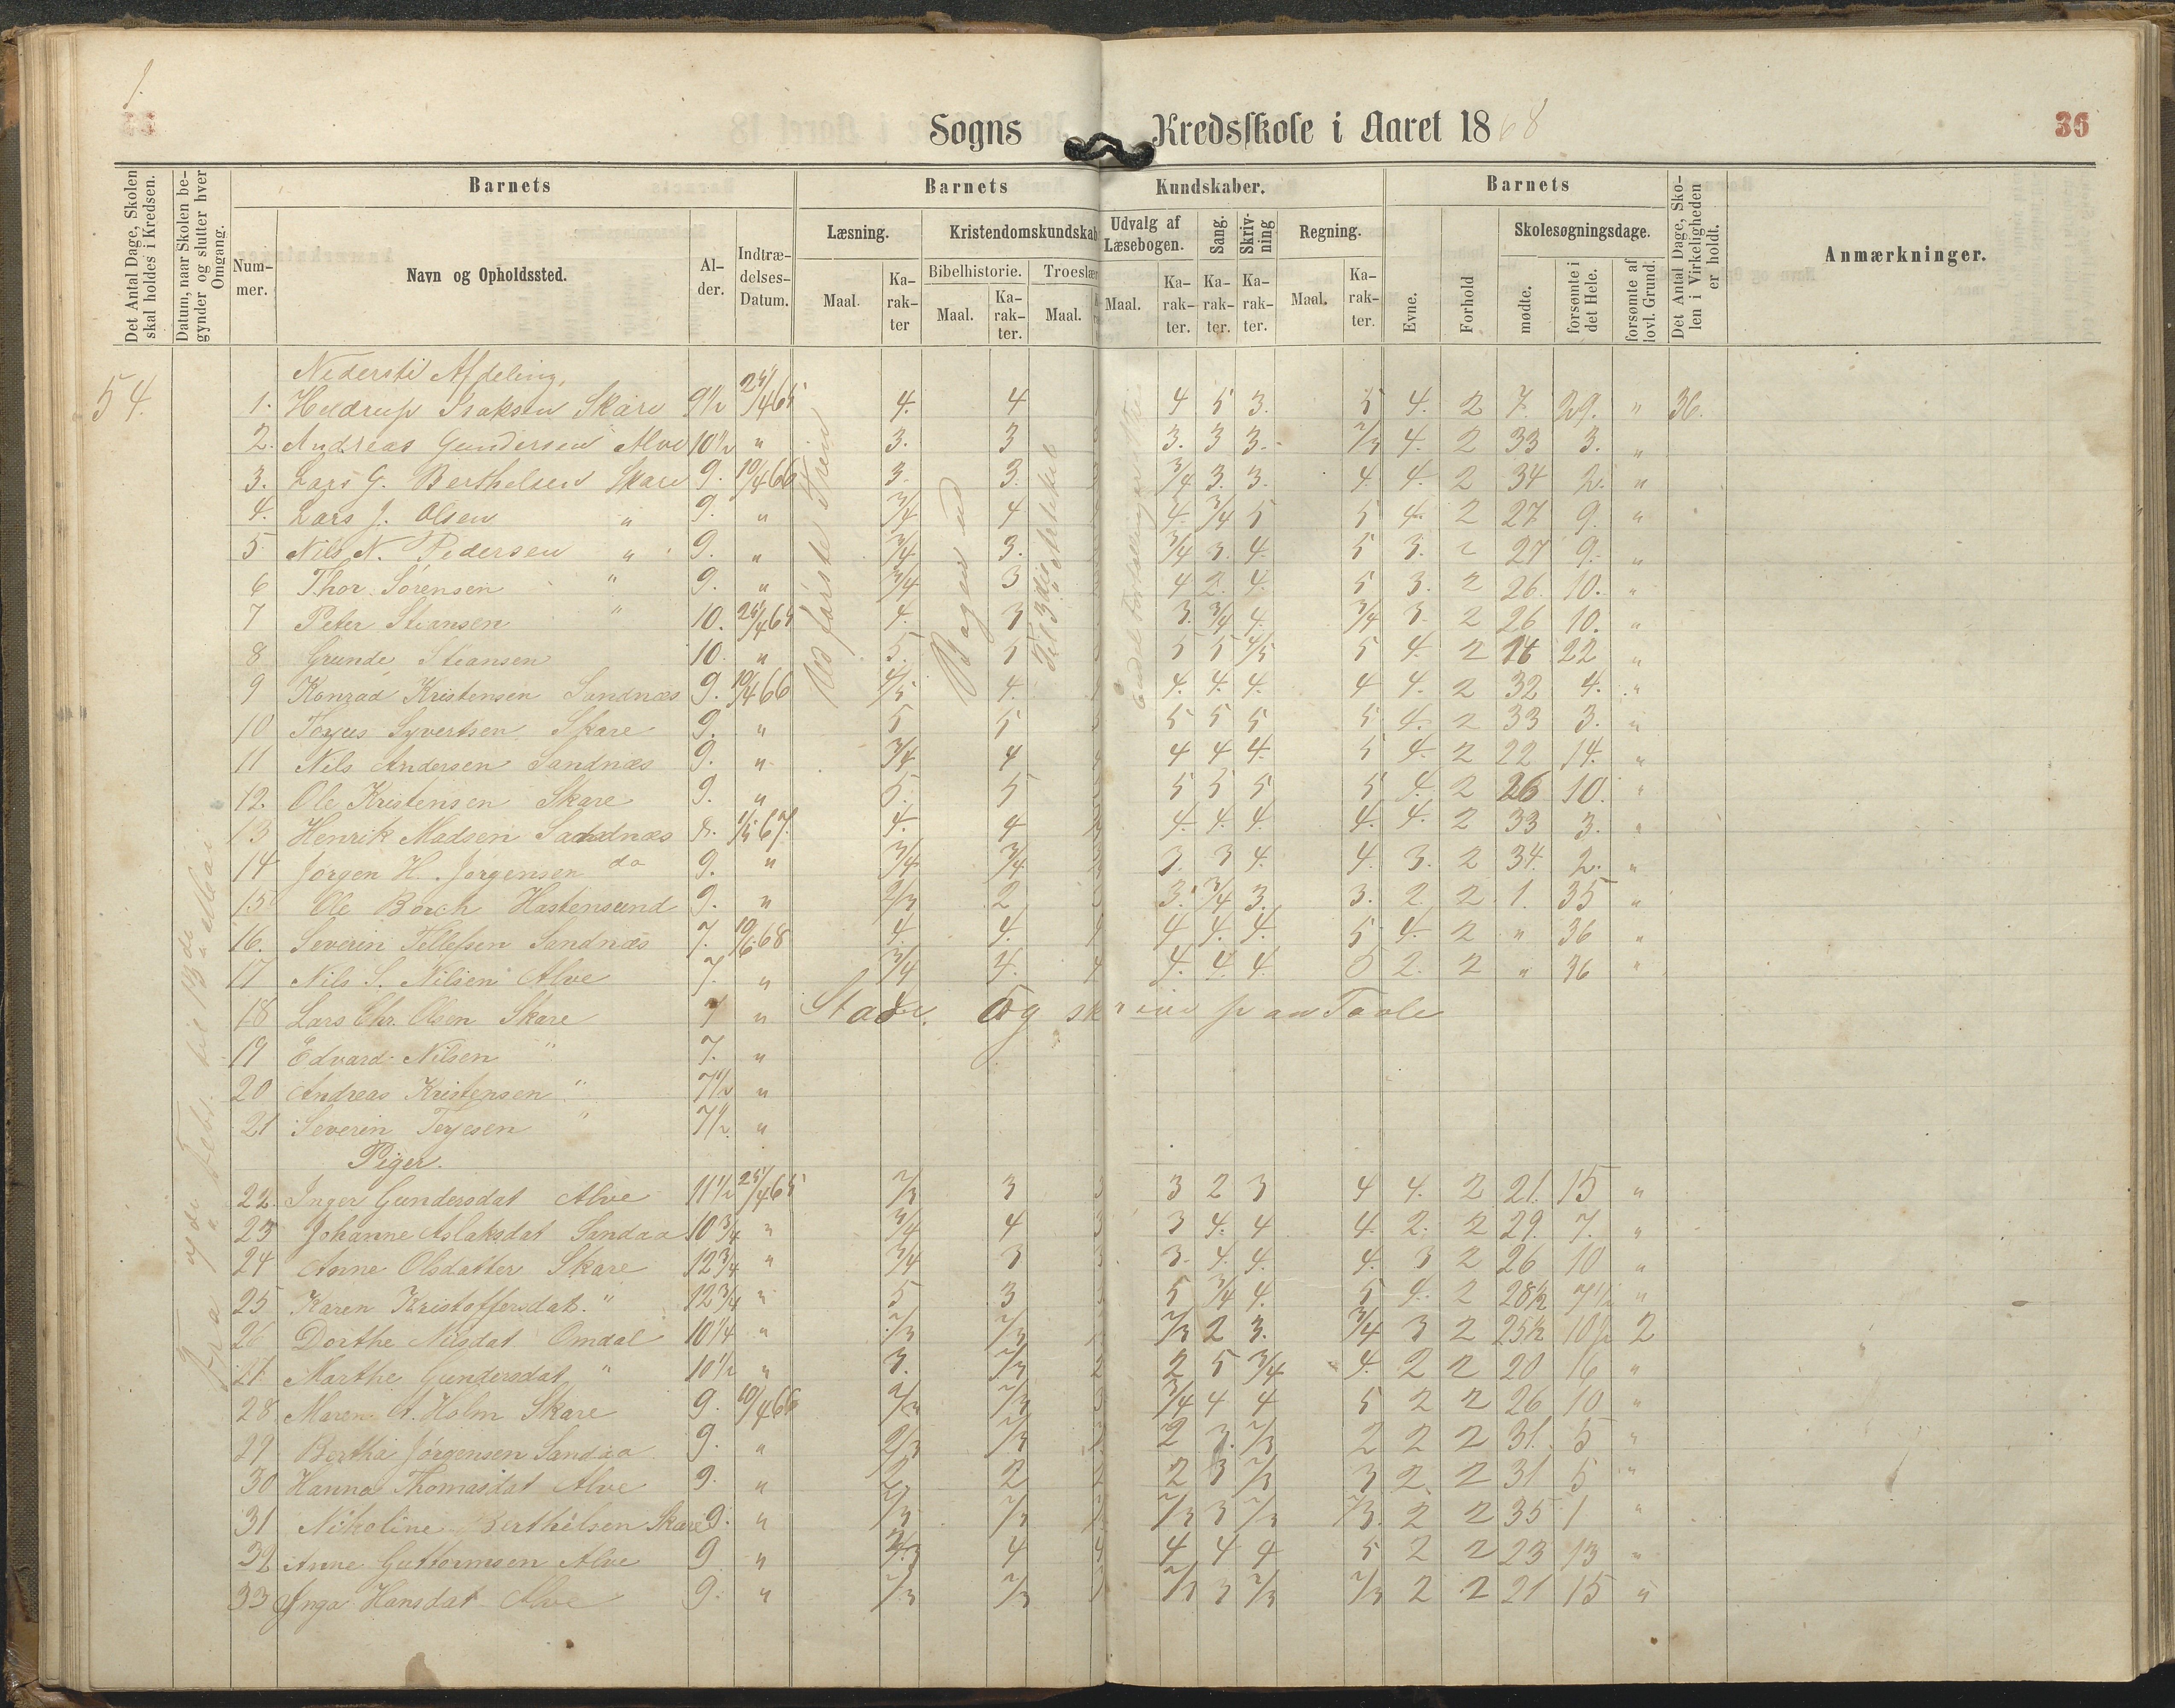 1.
Sogns Kredsskole i Aaret 1868
36
Det Antal Dage, Skolen skal holdes i Kredsen.
Datum, naar Skolen begynder og slutter hver Omgang.
Barnets
Barnets Kundskaber.
Barnets
Det Antal Dage, Skolen i Virkeligheden er holdt.
Anmærkninger.
Nummer.
Navn og Opholdssted.
Alder.
Indtrædelses-Datum.
Læsning.
Kristendomskundskab
Bibelhistorie.
Troeslær
Udvalg af Læsebogen.
Sang.
Skrivning
Regning.
Maal.
Karakter
Evne.
Forhold
Skolesøgningsdage.
mødte.
forsømte i det Hele.
forsømte af lovl. Grund.
Nederste Afdeling.
54. 1. Heldrup Isaksen Skare 9 1/2 25/4 65 4. 4 4 5 3. 5 4. 2 7. 29. " 36.
2. Andreas Gundersen Alve 10 1/2 " 3. 3 3. 3 3. 2/3 4. 2 33 3. "
3. Lars G. Berthelsen Skare 9. 10/4 66 3. 3. 3/4 3. 3. 4. 4. 2 34 2. "
4. Lars J. Olsen " 9. " 3/4 4 4. 3/4 5 5 4. 2 27 9. "
5 Nils N. Pedersen " 9. " 3/4 3. 3/4 3. 4. 5 3. 2 27 9. "
6 Thor Sørensen " 9. " 3/4 3 4 2. 4. 5 3. 2 26. 10. "
7 Peter Stiansen " 10. 25/4 65 4. 3 3. 3/4 4. 3/4 3. 2 26 10. "
8 Grunde Stiansen 10. " 5. 5 5 5 4/5 5 4. 2 14 22 "
9 Konrad Kristensen Sandnæs 9. 10/4 66 4/5 4. 4. 4. 4. 4 4. 2 32 4. "
10 Terjus Syvertsen Skare 9. " 5 5 5 5 5 5 4. 2 33 3. "
11 Nils Andersen Sandnæs 9. " 3/4 4 4 4 4. 5 4. 2 22 14. "
12. Ole Kristensen Skare 9. " 5. 5 5 5 5 5 4. 2 26 10. "
13 Henrik Madsen Sandnæs 8. 1/5 67. 4. 4 4. 4. 4. 4. 4. 2 33 3. "
14 Jørgen H. Jørgensen do 9. " 3/4 3/4 3. 3 4. 4. 3. 2 34. 2. "
15 Ole Borch Hastensund 9. " 2/3 2 3. 3/4 3. 3. 2. 2. 1. 35 "
16. Severin Tellefsen Sandnæs 7. 10/6 68 4. 4. 4 4 4. 4. 5 4. 2 " 36 "
17 Nils S. Nilsen Alve 7. " 3/4 4. 4 4. 4. 4. 5 2. 2 " 36 "
18 Lars Chr. Olsen Skare 7 " Stave. Og skrive paa Tavle
19 Edvard Nilsen " 7. "
20 Andreas Kristensen " 7 1/2 "
21 Severin Terjesen " 7 1/2 "
Piger.
22. Inger Gundersdat Alve 11 1/2 25/4 65 2/3 3 3 3 2 3 4 4. 2 21. 15 "
23 Johanne Aslaksdat Sandaa 10 3/4 " 3/4 4 3 3 4. 4 4. 2. 2 29. 7. "
24 Anne Olsdatter Skare 12 3/4 " 3/4 3 3 3. 4. 4. 4. 3 2 26 10 "
25 Karen Kristoffersdat. " 12 3/4 " 5 3 5 3/4 4. 5 4. 2 28 1/2 7 1/2 "
26 Dorthe Nilsdat Omdal 10 1/4 " 2/3 2/3 2/3 2 3. 3/4 3 2 25 1/2 10 1/2 2
27 Marthe Gundersdat " 10 1/2 " 3. 2/3 2 2 5 3/4 4. 2 2 20 16 "
28 Maren A. Holm Skare 9. 10/4 66 2/3 2/3 3 3/4 4 4 5 2 2 26 10 "
29 Bertha Jørgensen Sandaa 9. " 2/3 2/3 2 3. 2/3 2 2 2 31. 5 "
30 Hanna Thomasdat Alve 9. " 2 2 2 2 3 2/3 3 2 2 31 5 "
31 Nikoline Berthelsen Skare 9. " 2/3 2/3 2/3 3 2/3 2/3. 2 2 35 1 "
32 Anne Guttormsen Alve 9 " 4 4 4 4 4 5 2 2 23 13 "
33 Inga Hansdat Alve 9. " 2/3 2/3 2/3 3 2/3 2/3 2 2 21 15 "
Fra og til 13de Mai
Ved første Trin
Bogen ud
Til 3die Artikel
Endel Fortællinger